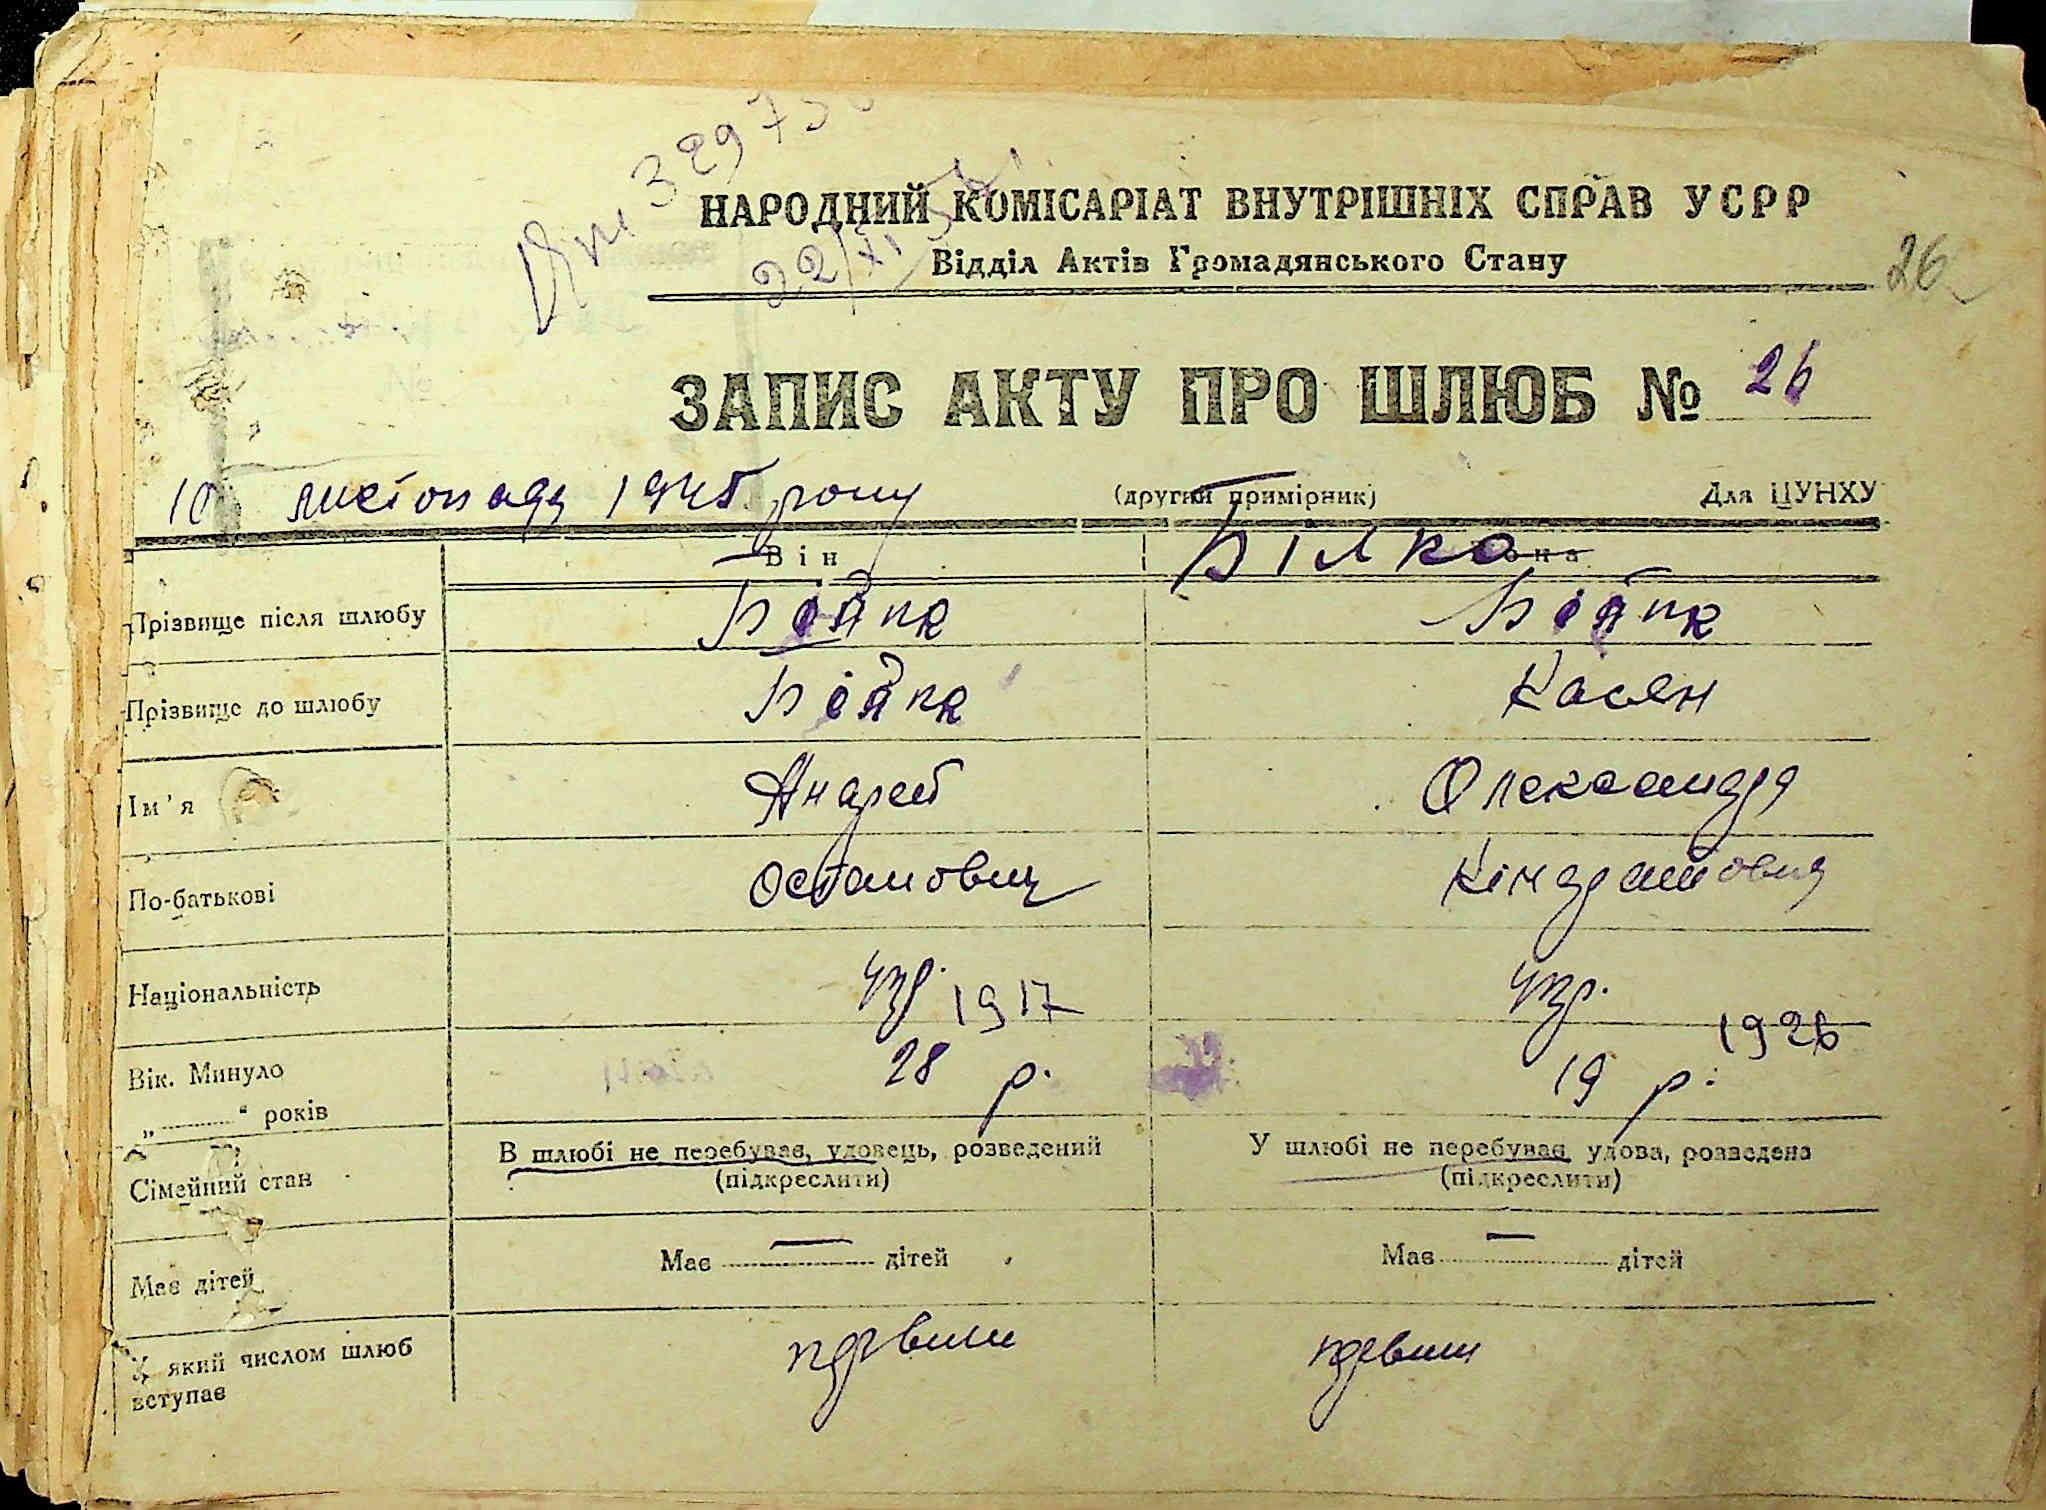 329
22/XI
НАРОДНИЙ КОМІСАРІАТ ВНУТРІШНІХ СПРАВ УСРР
Відділ Актів Громадянського Стану
26
ЗАПИС АКТУ ПРО ШЛЮБ № 26
10 листопада 1945 року (другий примірник) Для ЦУНХУ
Він Білко Вона
Прізвище після шлюбу
Прізвище до шлюбу Касян
Ім'я Андрей Олександра
По-батькові Остапович Кіндратовна
Національність укр. 1917 укр. 1926
Вік. Минуло 28 р. 19 р.
„ " років
Сімейний стан В шлюбі не перебував, удовець, розведений У шлюбі не перебував, удова, розведена
(підкреслити) (підкреслити)
Має дітей Має — дітей Має — дітей
У який числом шлюб первши первши
вступав